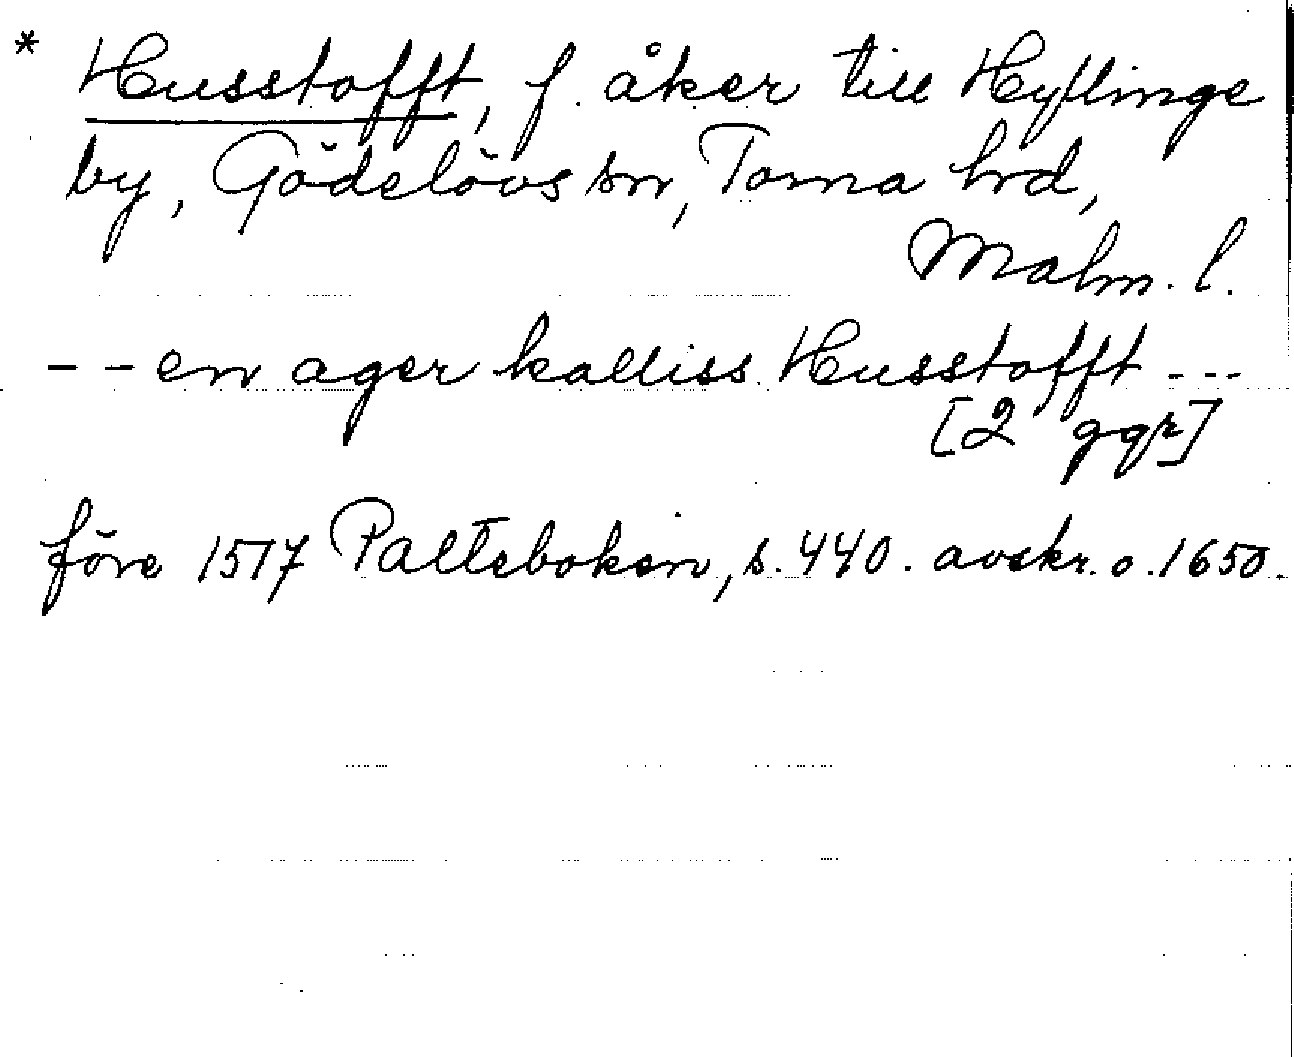 * Husstofft, f. åker till Hyllinge
by, Gödelövs sn, Torna hrd,
Malm. l.
- - en ager kalliss Husstofft - - -
[2 ggr]
före 1517 Palteboken, s. 440. avskr. o. 1650.